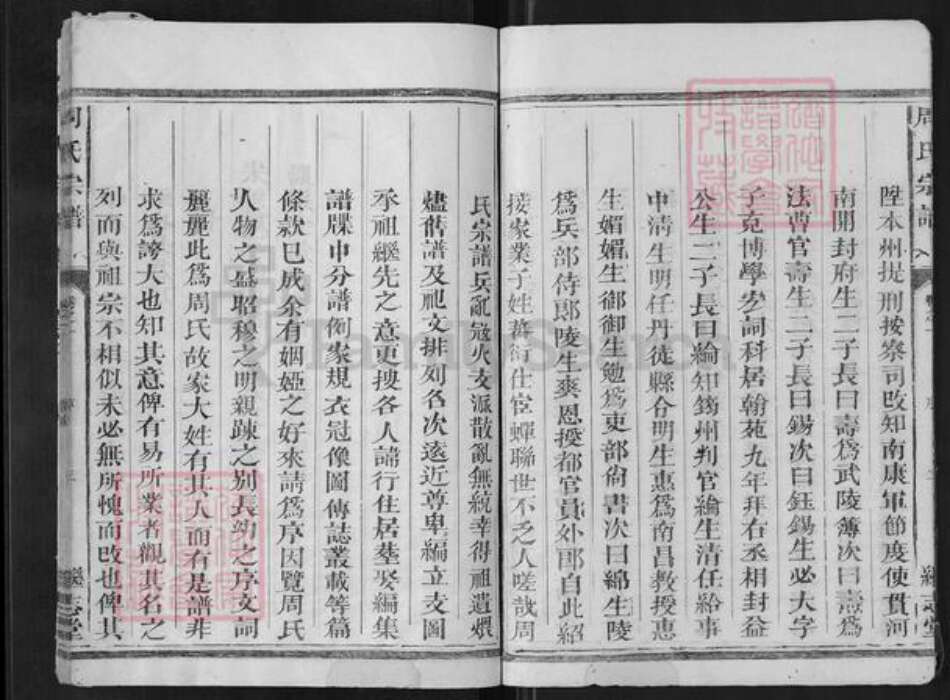 周氏宗譜
陞本州提刑按察司改知南康軍節度使貫河
南開封府生二子長曰壽為武陵簿次曰燾為
法曹官壽生二子長曰錫次曰鈺錫生必大字
子克博學宏詞科居翰苑九年拜右丞相封益
公生二子長曰綸知筠州判官綸生清任給事
中清生明任丹徒縣令明生惠為南昌教授惠
生媚媚生御御生勉為吏部尙書次曰綿生陵
為兵部侍郞陵生奭恩授都官員外郞自此紹
接家業子姓蕃衍仕宦蟬聯世不乏人嗟哉周
氏宗譜兵亂寇火支派散亂無統幸得祖遺煨
燼舊譜及祀文排列名次遠近尊卑編立支圖
承祖繼先之意更搜各人諱行住居墓塋編集
譜牒中分譜例家規衣冠像圖傳誌叢載等篇
條款已成余有姻婭之好來請為序因覽周氏
人物之盛昭穆之明親疎之別長幼之序文詞
麗麗此為周氏故家大姓有其人而有是譜非
求為誇大也知其意俾有易所業者觀其名之
列而與祖宗不相似未必無所愧而改也俾其
周氏宗譜